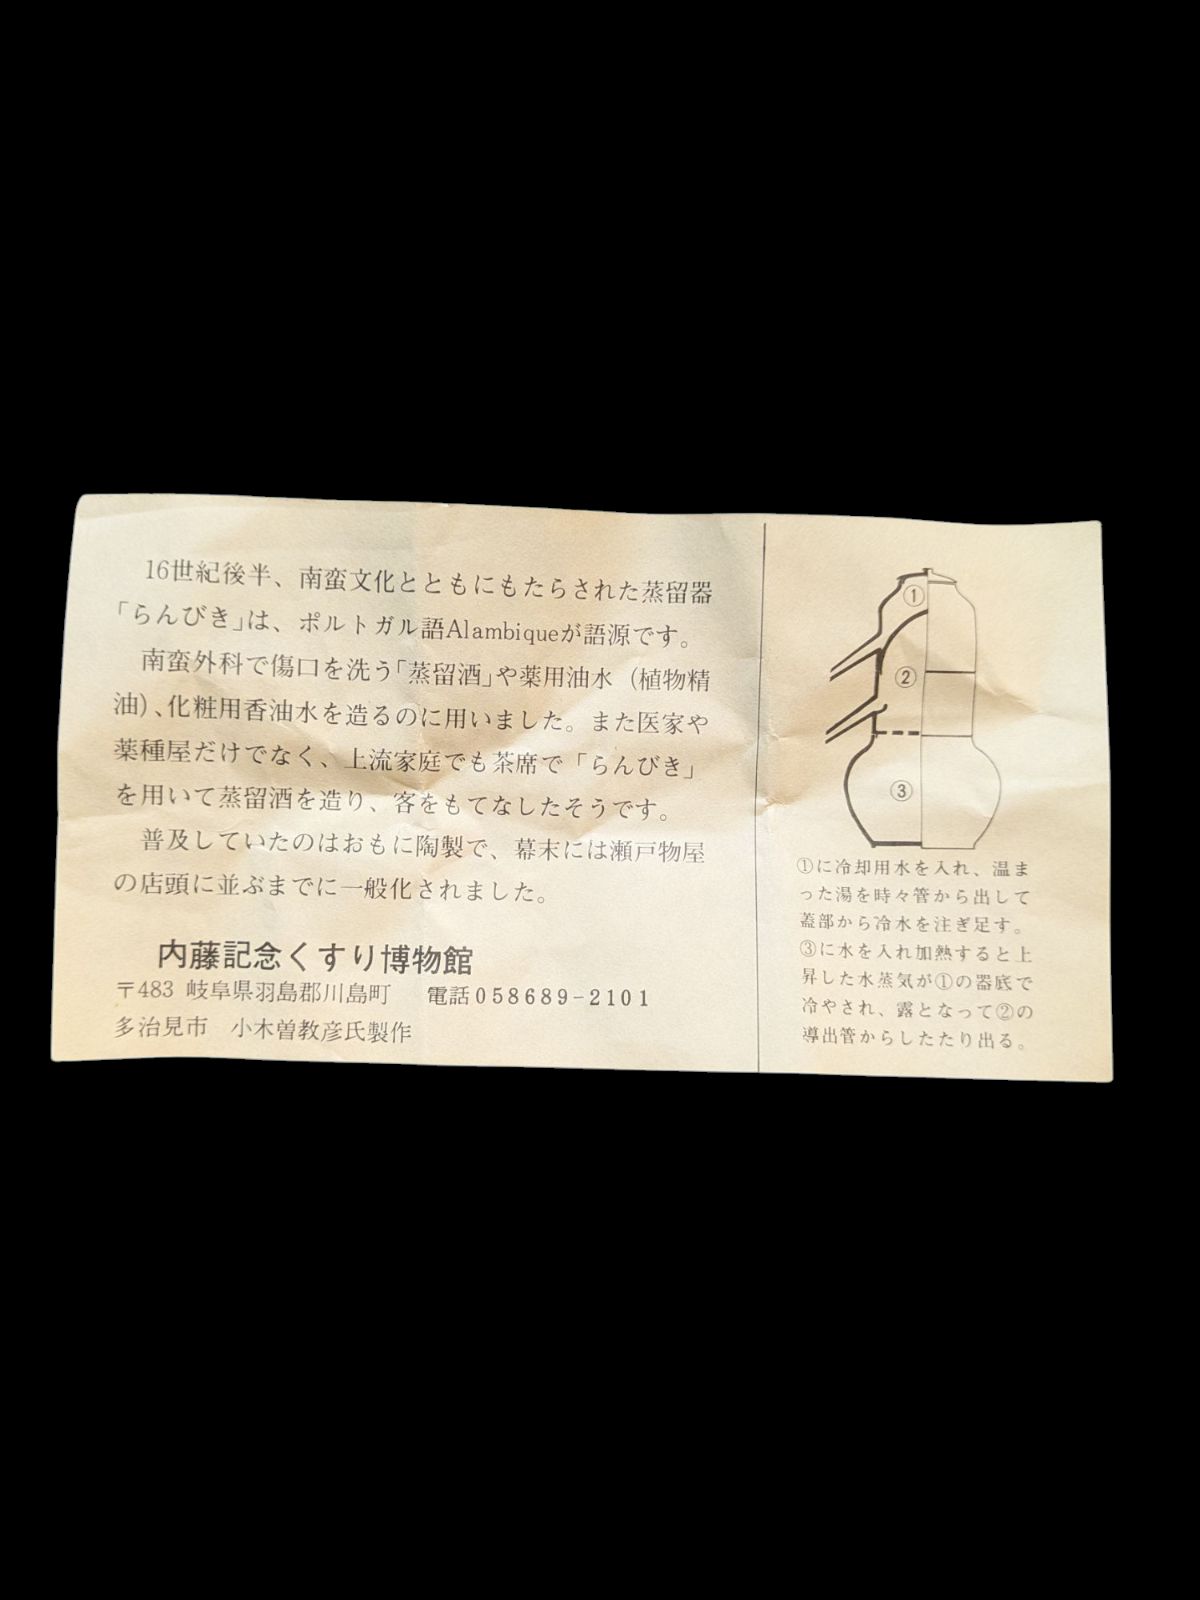 16世紀後半、南蛮文化とともにもたらされた蒸留器
「らんびき」は、ポルトガル語Alambiqueが語源です。
南蛮外科で傷口を洗う「蒸留酒」や薬用油水（植物精
油）、化粧用香油水を造るのに用いました。また医家や
薬種屋だけでなく、上流家庭でも茶席で「らんびき」
を用いて蒸留酒を造り、客をもてなしたそうです。
普及していたのはおもに陶製で、幕末には瀬戸物屋
の店頭に並ぶまでに一般化されました。
内藤記念くすり博物館
〒483 岐阜県羽島郡川島町 電話058689-2101
多治見市 小木曽教彦氏製作
①
②
③
①に冷却用水を入れ、温ま
った湯を時々管から出して
蓋部から冷水を注ぎ足す。
③に水を入れ加熱すると上
昇した水蒸気が①の器底で
冷やされ、露となって②の
導出管からしたたり出る。